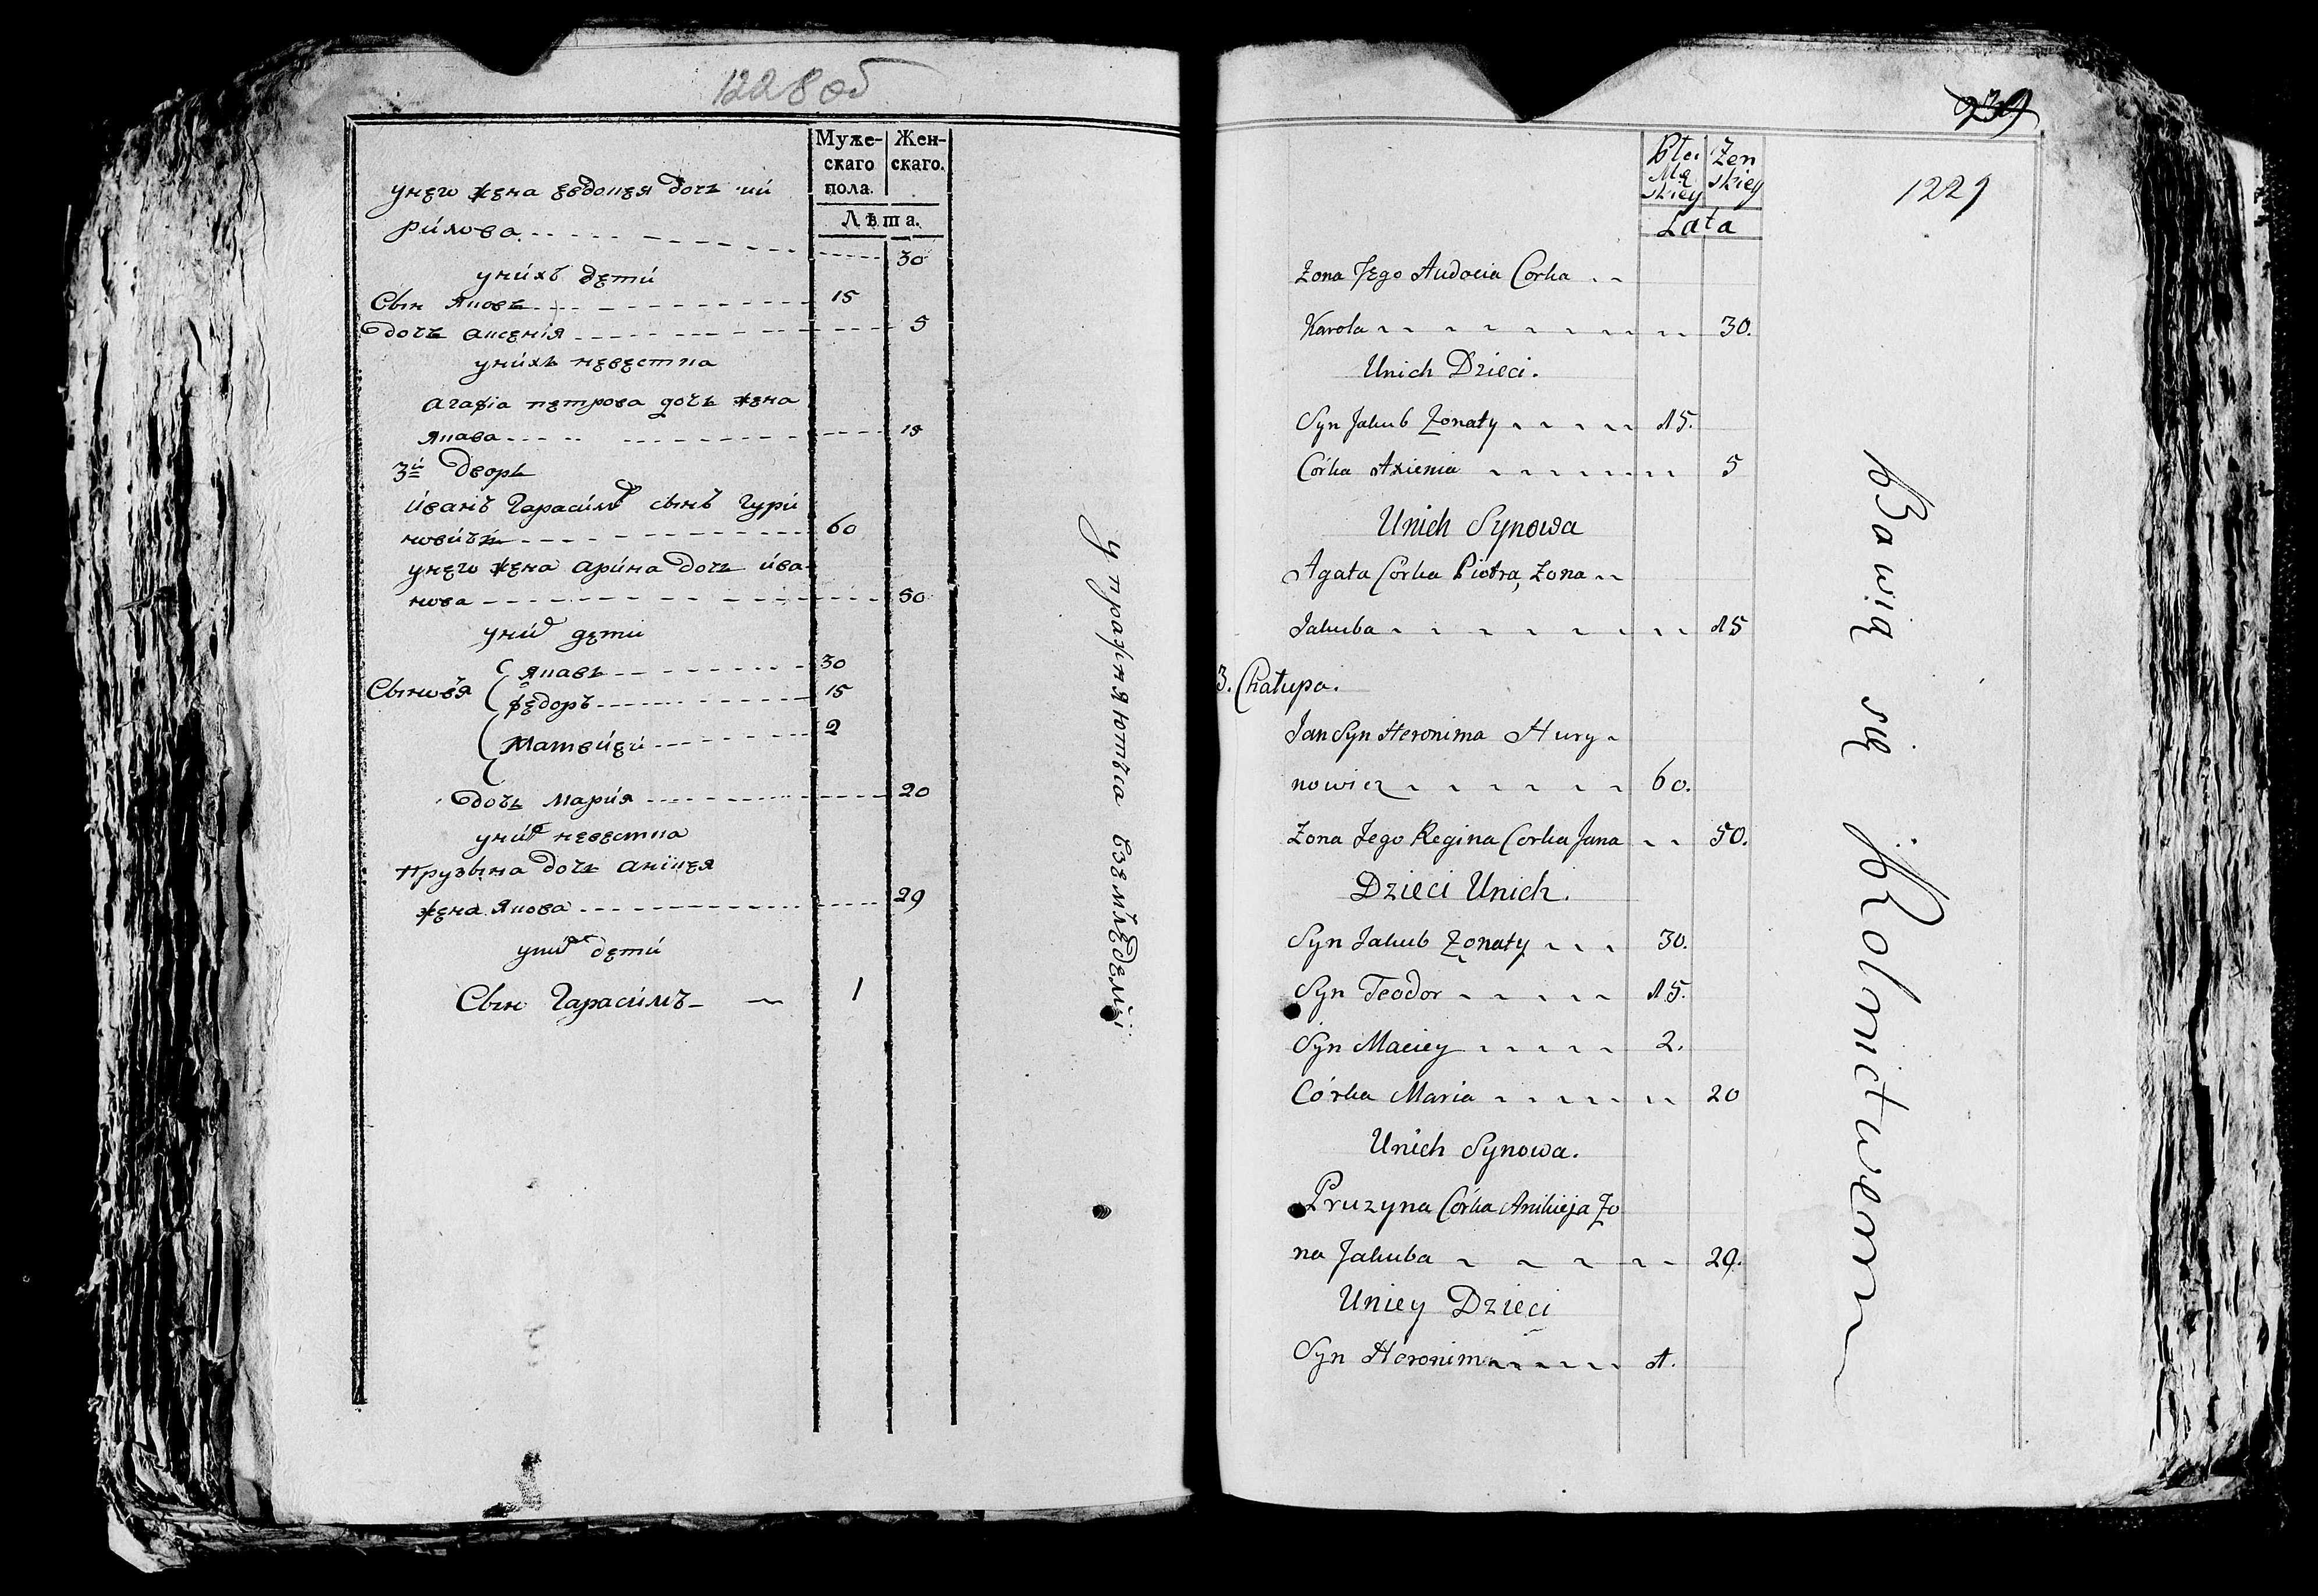 1228 об
Муже-
скаго
пола.
Жен-
скаго.
Лѣта.
унего жена евдокея дочь ки
рилова 30
унихъ дети
Сын Яковъ 15
дочь аксенія 5
унихъ невестка
агафіа петрова дочь жена
Якава 15
3й дворъ
иванъ Гарасимов сынъ гури
новичъ 60
унего жена арина дочь ива
нова 50
уних дети
Сыновья
Якавъ 30
федоръ 15
Матвией 2
дочь Мария 20
уних невестка
Прузына дочь аникея
жена Якова 29
уних дети
Сын Гарасимъ 1
упражняютъса взъмледеліи
239
1229
Płci
Mę
skiey
Żen
skiey
Lata
Zona Jego Audocia Corka
Karola 30.
Unich Dzieci.
Syn Jakub Zonaty 15.
Córka Axienia 5
Unich Synowa
Agata Córka Piotra, Zona
Jakuba 15
3. Chałupa.
Jan Syn Heronima Hury
nowicz 60.
Zona Jego Regina Corka Jana 50.
Dzieci Unich.
Syn Jakub Zonaty 30.
Syn Teodor 15.
Syn Maciey 2.
Córka Maria 20
Unich Synowa.
Pruzyna Córka Anikieja Zo
na Jakuba 29.
Uniey Dzieci
Syn Heronim 1.
Bawią się Rolnictwem